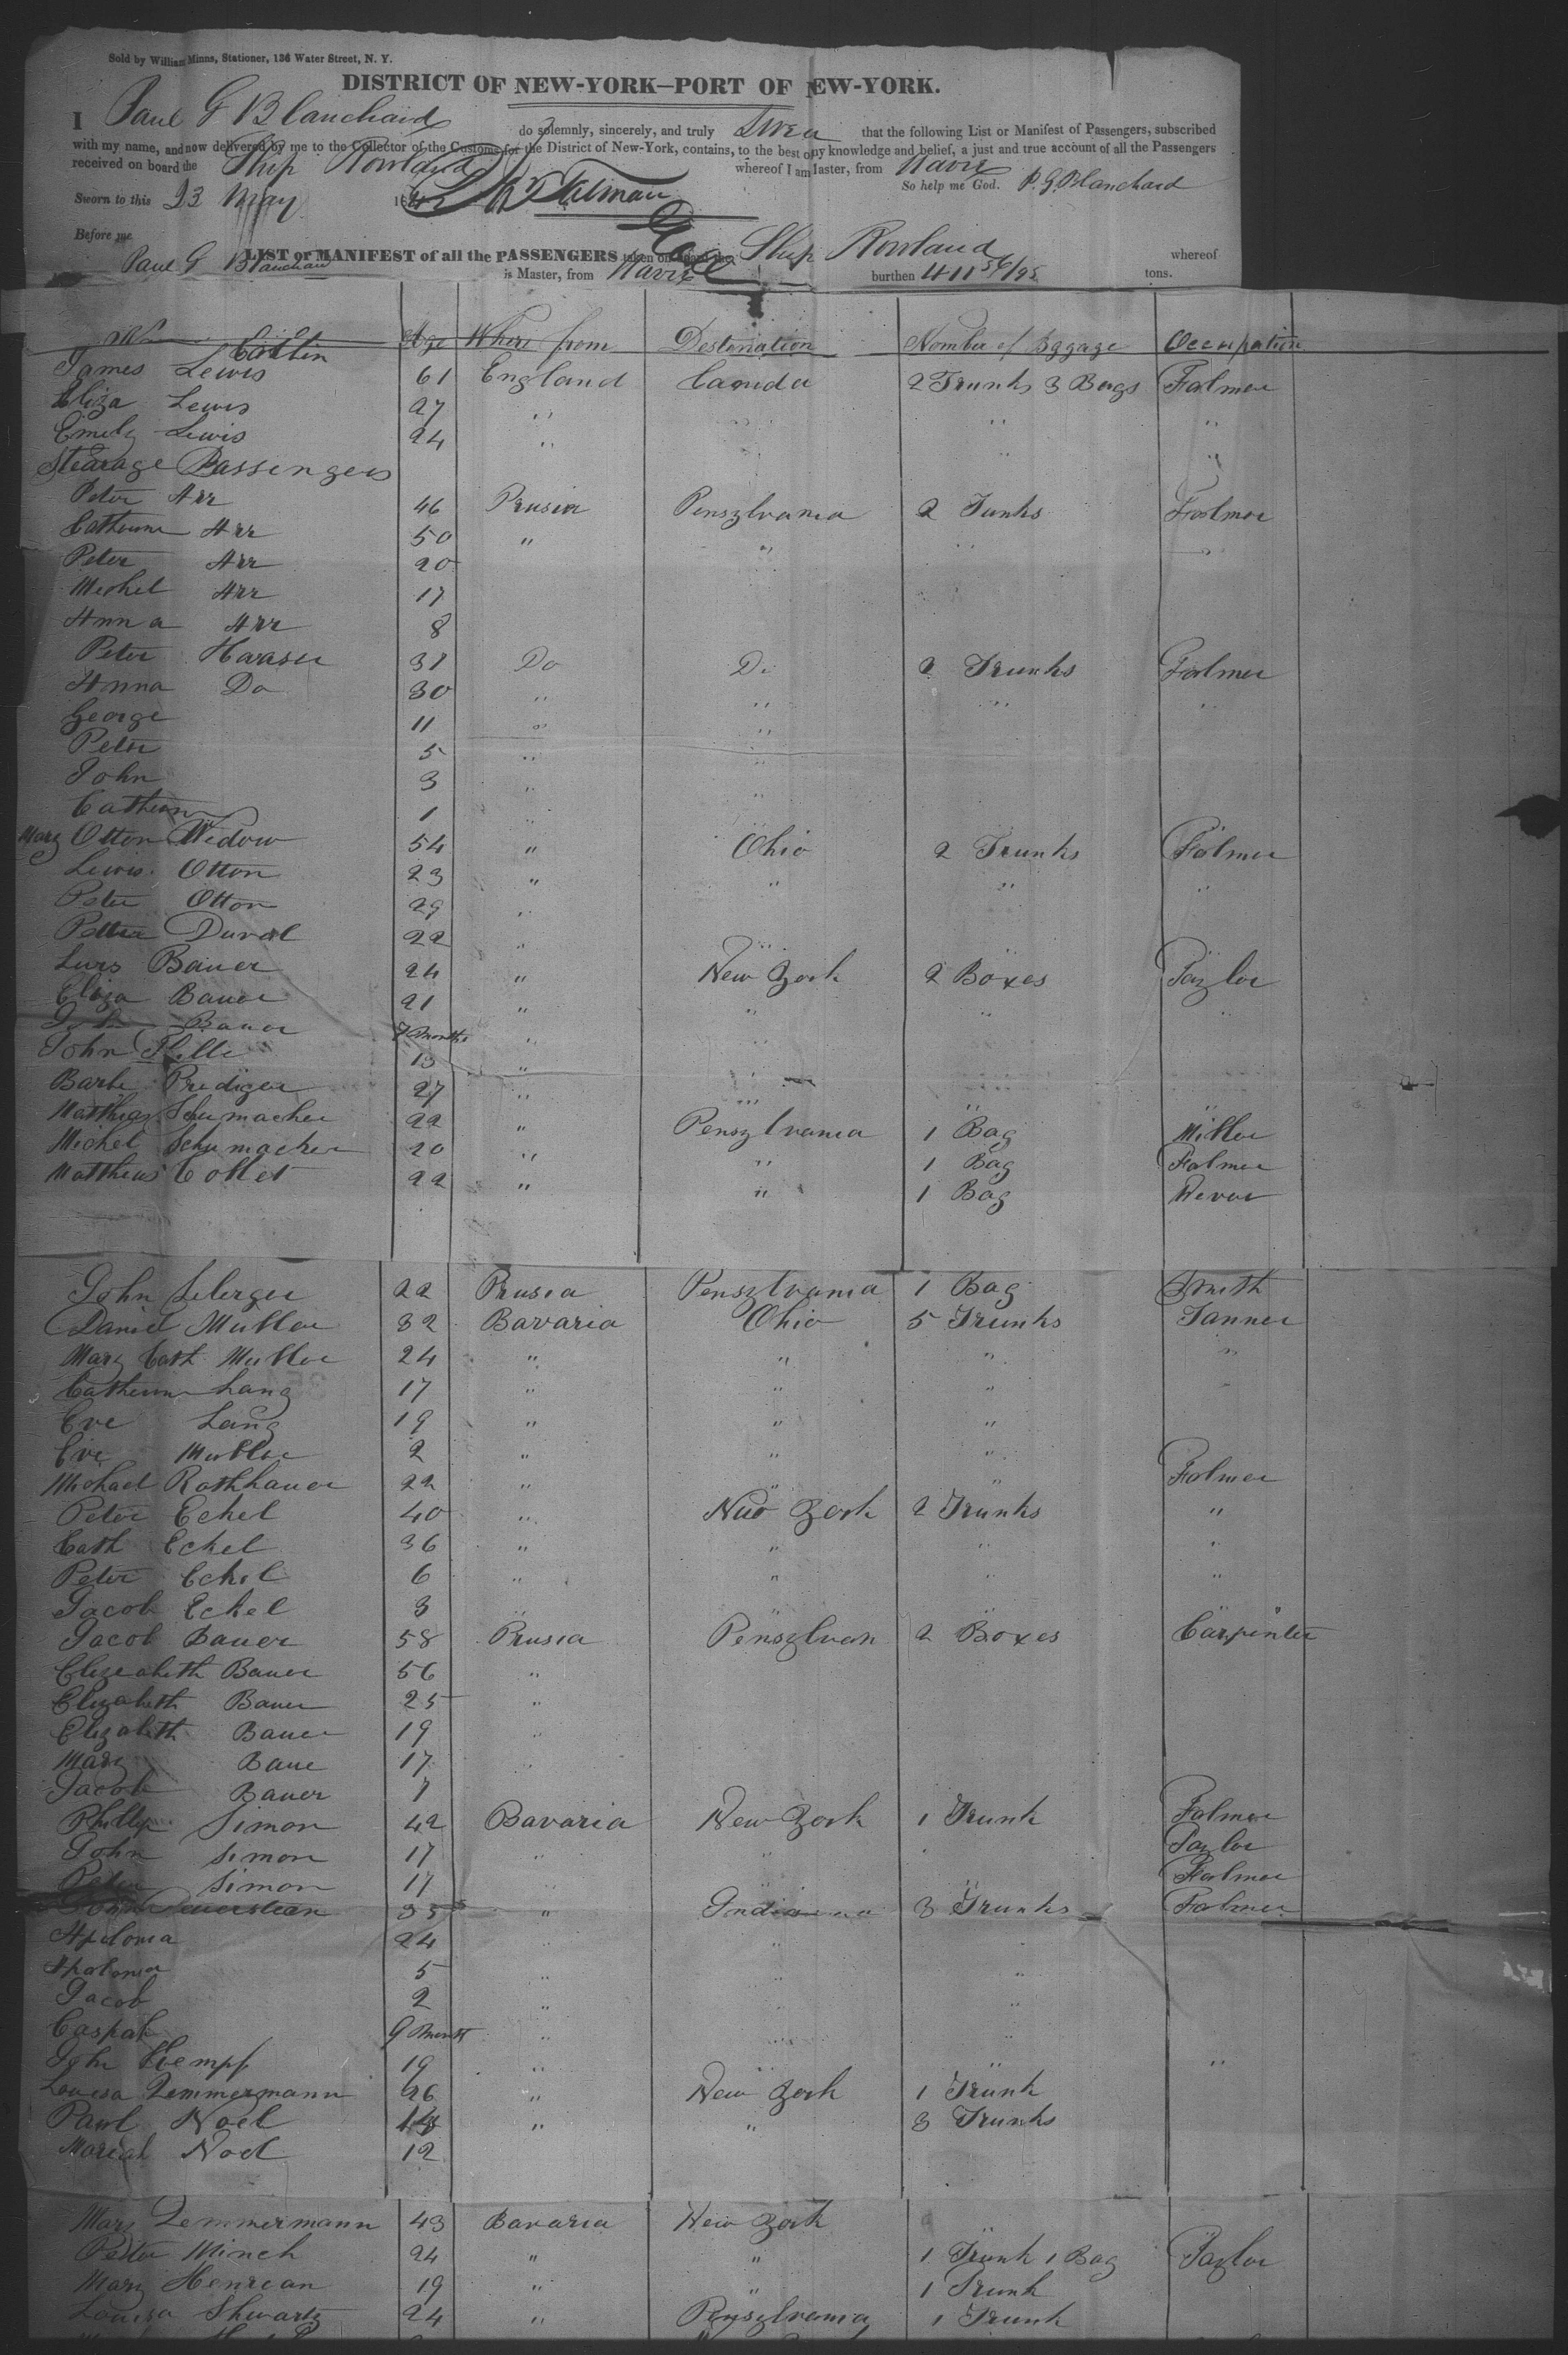 Sold by William Minns, Stationer, 136 Water Street, N. Y.
DISTRICT OF NEW-YORK—PORT OF EW-YORK.
I Paul G Blanchard do solemnly, sincerely, and truly Swea that the following List or Manifest of Passengers, subscribed
with my name, and now delivered by me to the Collector of the Customs for the District of New-York, contains, to the best o my knowledge and belief, a just and true account of all the Passengers
received on board the Ship Rowland whereof I am Master, from Havre
Sworn to this 23 May 1842 So help me God. P. G. Blanchard
Before me
LIST or MANIFEST of all the PASSENGERS taken on board the Ship Rowland whereof
Paul G Blanchard is Master, from Havre burthen 411 56/95 tons.
Age Where from Destination Number of Bggage Occupation
Cabbin
James Lewis 61 England Canida 2 Trunks 3 Bags Falmer
Eliza Lewis 27 " " " "
Emely Lewis 24 " " "
Stearage Passengers
Peter Arr 46 Prusia Penszlvania 2 Tunks Falmer
Catherine Arr 50 " " " "
Peter Arr 20
Michel Arr 17
Anna Arr 8
Peter Havaser 31 Do Do 2 Trunks Falmer
Anna Do 30 " " " "
George 11 " "
Peter 5 " "
John 3 " "
Catherine 1 "
Mary Otton Widow 54 " Ohio 2 Trunks Falmer
Lewis Otton 23 " " " "
Peter Otton 29 "
Duval 22 " "
Bauer 24 " New Zork 2 Boxes Tazlor
Eliza Bauer 21 " " " "
Bauer 7 Months "
John 13 "
Barbe Prediger 27 " "
Matthias Schumacher 22 " Penszlvania 1 Bag Miller
Michel Schumacher 20 " " 1 Bag Falmer
Matthias Collet 22 " " 1 Bag Wever
John 22 Prusia Penszlvania 1 Bag Smith
Daniel Muller 32 Bavaria Ohio 5 Trunks Tanner
Mary Cath Muller 24 " " " "
Catherine Lang 17 " " "
Eve Lang 19 " " "
Eve Muller 2 " " "
Michael Rothhauer 22 " " " Falmer
Peter Eckel 40 " New Zork 2 Trunks "
Cath Eckel 36 " " " "
Peter Eckel 6 " " " "
Jacob Eckel 3 " " "
Jacob Bauer 58 Prusia Penszlvan 2 Boxes Carpinter
Elizabeth Bauer 56 "
Elizabeth Bauer 25 "
Elizabeth Bauer 19 "
Mary Baue 17 "
Jacob Bauer 1
Phillip Simon 42 Bavaria New Zork 1 Trunk Falmer
John Simon 17 " " Tazlor
Peter Simon 17 " Falmer
35 " Indiana 3 Trunks Falmer
Apolonia 24 " " "
Apolonia 5 " " "
Jacob 2 " " "
Caspah 9 Monst " " "
John Kempf 19 " " " "
Louisa Zemmermann 26 " New Zork 1 Trunk
Paul Noel " " 3 Trunks
Mariah Noel 12
Mary Zemmermann 43 Bavaria New Zork
Peter Minch 24 " " 1 Trunk 1 Bag Tazlor
Mary Henrean 19 " " 1 Trunk
Louisa Shwartz 24 " Penszlvania 1 Trunk